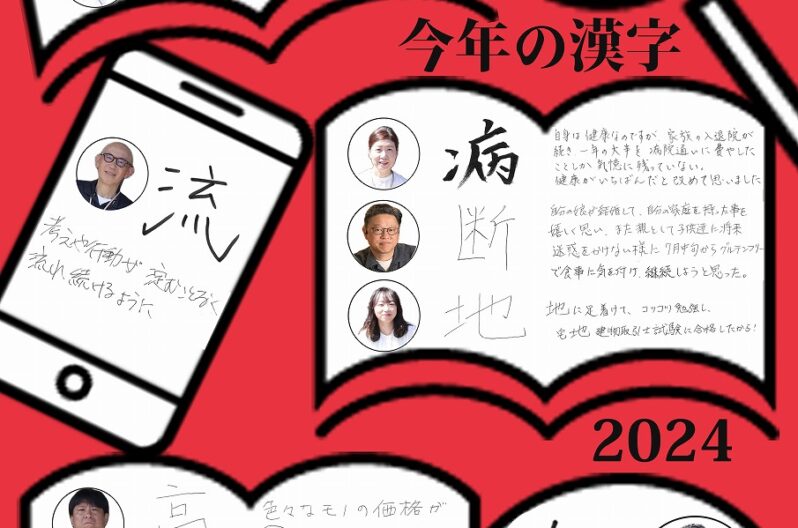 今年の漢字
流
考えや行動が淀むことなく
流れ続けるように
病
自身は健康なのですが、家族の入退院が
続き一年の大半を病院通いに費やした
ことしか記憶に残っていない。
健康がいちばんだと改めて思いました
断
自分の娘が結婚して、自分の家庭を持った事を
嬉しく思い、また親として子供達に将来
迷惑をかけない様に7月中旬からグルテンフリー
で食事に気を付け、継続しようと思った。
地
地に足着けて、コツコツ勉強し、
宅地建物取引士試験に合格したから!
2024
高
色々なモノの価格が